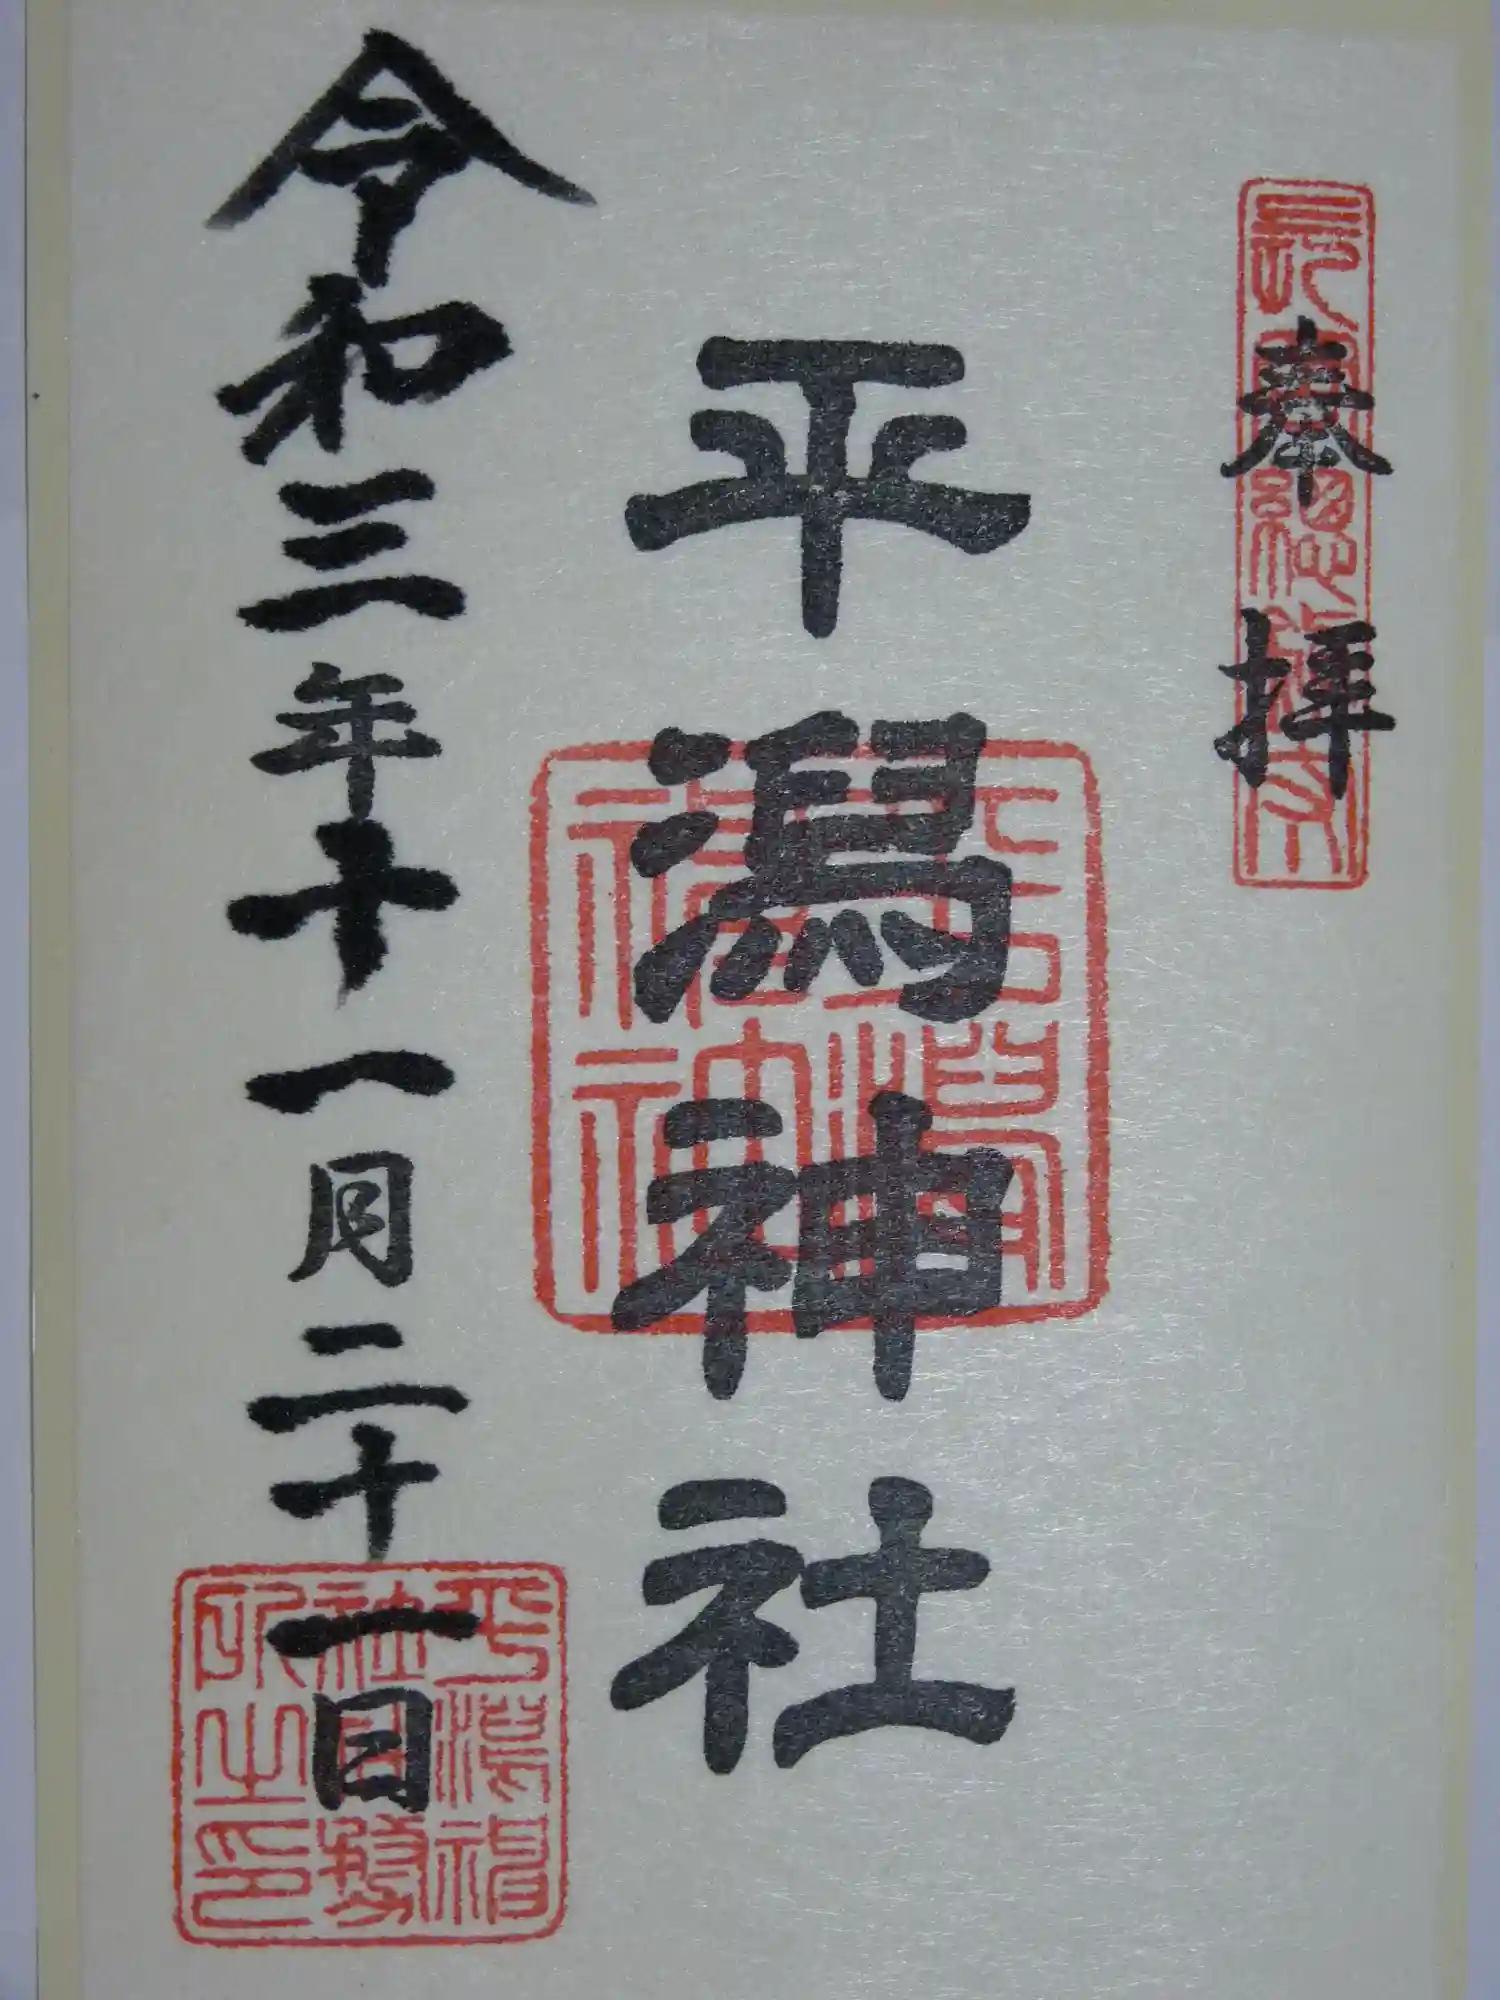 奉拝
平潟神社
令和三年十一月二十一日
平潟神社社務所之印